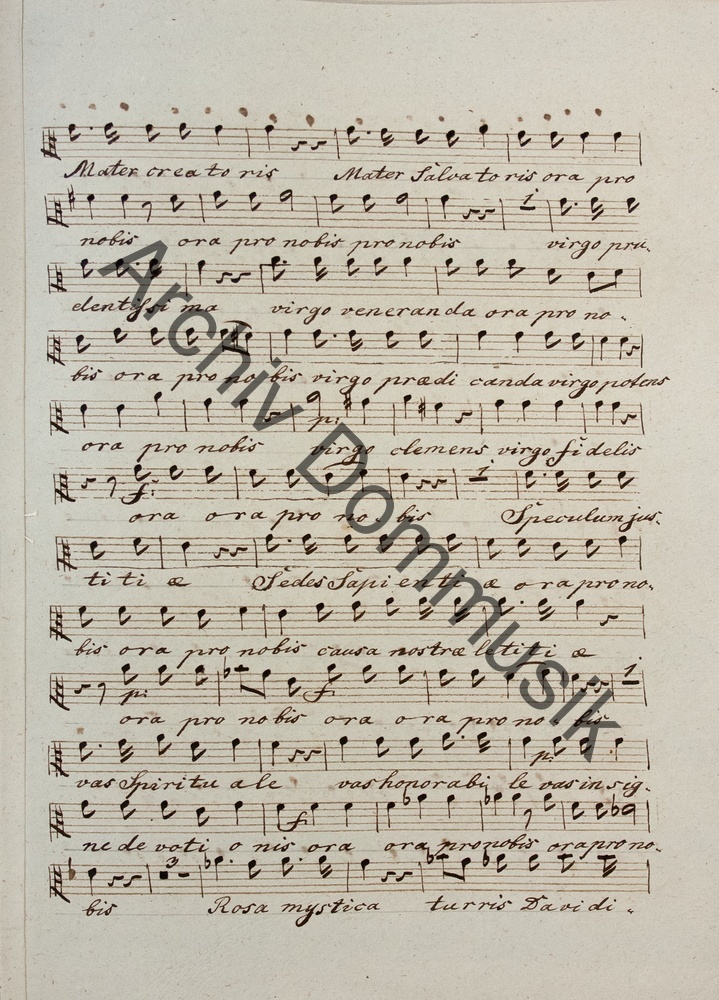 Mater creatoris Mater Salvatoris ora pro
nobis ora pro nobis pro nobis 1 virgo pru-
dentissima virgo veneranda ora pro no-
bis ora pro nobis virgo prædicanda virgo potens
ora pro nobis p: virgo clemens virgo fidelis
f: ora ora pro nobis 1 Speculum jus-
titiæ Sedes Sapientiæ ora pro no-
bis ora pro nobis causa nostræ letitiæ
p: ora pro nobis f: ora ora pro no-bis 1
vas Spirituale vas honorabile p: vas insig-
ne devotionis f: ora ora pro nobis ora pro no-
bis 3 Rosa mystica turris Davidi-
Archiv Dommusik